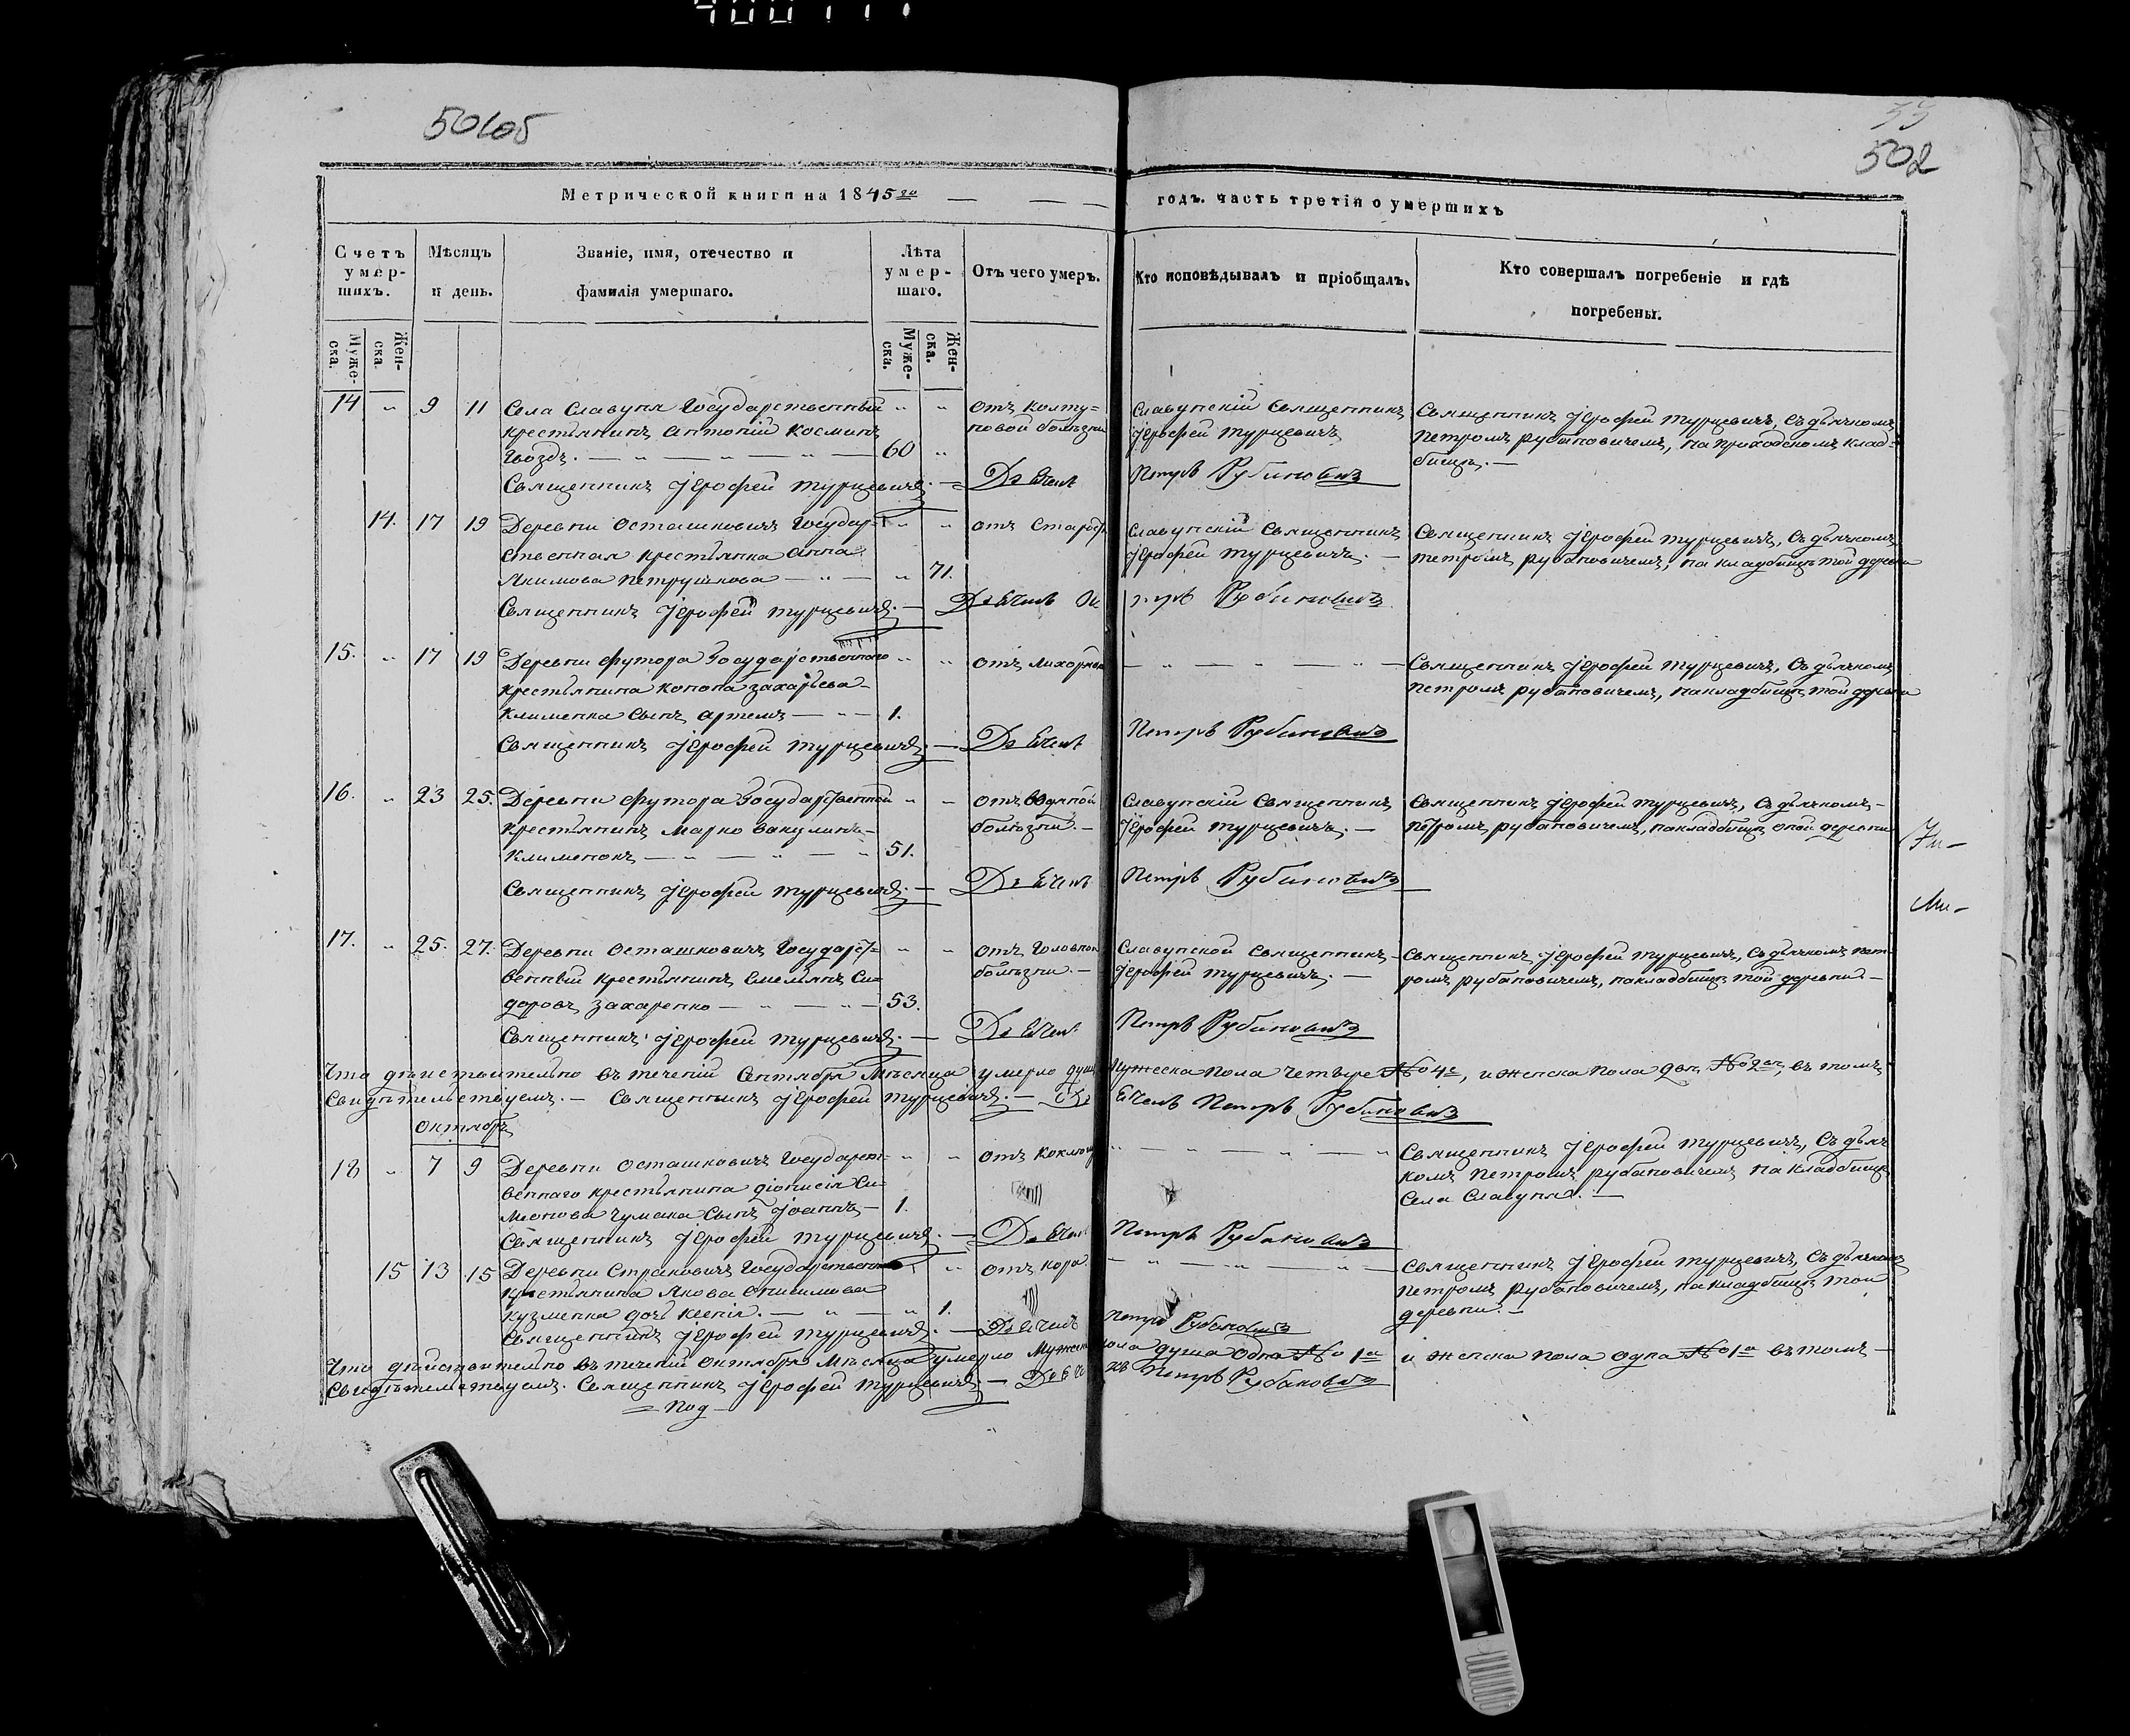 502
Метрической книги на 1845го
годъ. часть третія о умершихъ
Счетъ умер-шихъ.
Мѣсяцъ и день.
Званіе, имя, отечество и фамилія умершаго.
Лѣта умер-шаго.
Отъ чего умеръ.
Кто исповѣдывалъ и пріобщалъ.
Кто совершалъ погребеніе и гдѣ погребены.
Муже-ска.
Жен-ска.
Муже-ска.
Жен-ска.
14 " 9 11 Села Славуня Государственный " " отъ колту= Славунскій Священникъ Священникъ Іерофей Турцевичъ, съ дьячкомъ
крестьянинъ Антоній Косминъ новой болѣзни Іерофей Турцевичъ Петромъ Рубановичемъ, на приходскомъ клад-
Гвоздъ. — " — " — " — 60 " бищѣ. —
Священникъ Іерофей Турцевичъ. — Дьячекъ Петръ Рубановичъ
14. 17 19 Деревни Осташковичъ Государ- " " отъ Старос. Славунскій Священникъ Священникъ Іерофей Турцевичъ, съ дьячкомъ
ственная крестьянка Анна Іерофей Турцевичъ. — Петромъ Рубановичемъ, на кладбищѣ той деревни
Якимова Петрушкова — " — " 71.
Священникъ Іерофей Турцевичъ. — Дьячекъ Петръ Рубановичъ
15. " 17 19 Деревни Футора Государственнаго " " отъ лихорадки — " — " — " — Священникъ Іерофей Турцевичъ, съ дьячкомъ
крестьянина Конона Захарьева Петромъ Рубановичемъ, на кладбищѣ той деревни
Клименка сынъ Артемъ — " — 1.
Священникъ Іерофей Турцевичъ. — Дьячекъ Петръ Рубановичъ
16. " 23 25. Деревни Футора Государственной " " отъ водяной Славунскій Священникъ Священникъ Іерофей Турцевичъ, съ дьячкомъ —
крестьянинъ Марко Вакулинъ — болѣзни. — Іерофей Турцевичъ. — Петромъ Рубановичемъ, на кладбищѣ оной деревни
Клименокъ — " — " — " 51.
Священникъ Іерофей Турцевичъ. — Дьячекъ Петръ Рубановичъ
17. " 25. 27. Деревни Осташковичъ Государст= " " отъ Головной Славунской Священникъ — Священникъ Іерофей Турцевичъ, съ дьячкомъ Пет-
венный крестьянинъ Емельянъ Си- болѣзни. — Іерофей Турцевичъ. — ромъ Рубановичемъ, на кладбищѣ той деревни —
доровъ Захаренко — " — " — 53.
Священникъ Іерофей Турцевичъ. — Дьячекъ Петръ Рубановичъ
Что дѣйствительно въ теченіи Сентября Мѣсяца умерло душъ Мужеска пола Четыре № 4е, и женска пола двѣ № 2ѣ, въ томъ
Свидѣтельствуемъ. — Священникъ Іерофей Турцевичъ. — Дьячекъ Петръ Рубановичъ
Октябръ
18 " 7 9 Деревни Осташковичъ Государст- " " отъ коклюша " — " — " — " Священникъ Іерофей Турцевичъ, съ дьяч-
веннаго крестьянина Діонисія Си- комъ Петромъ Рубановичемъ на кладбищѣ
меонова Чумака сынъ Іоаннъ — 1. Села Славуня. —
Священникъ Іерофей Турцевичъ. — Дьячекъ Петръ Рубановичъ
15 13 15 Деревни Страковичъ Государственнаго " отъ кора — " — " — " — Священникъ Іерофей Турцевичъ, съ дьячкомъ
крестьянина Якова Онисимова Петромъ Рубановичемъ, на кладбищѣ той
Кузменка дочь Ксенія. — " — " 1. деревни. —
Священникъ Іерофей Турцевичъ. — Дьячекъ Петръ Рубановичъ
Что дѣйствительно въ теченіи Октября Мѣсяца умерло Мужеска пола душа одна № 1а и женска пола одна № 1а въ томъ —
Свидѣтельствуемъ. Священникъ Іерофей Турцевичъ — Дьячекъ Петръ Рубановичъ